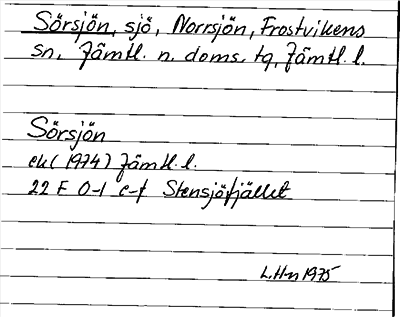 Sörsjön, sjö, Norrsjön, Frostvikens
sn, Jämtl. n. doms. tg, Jämtl. l.
Sörsjön
ek (1974) Jämtl. l.
22 F 0-1 c-f Stensjöfjället
L.Hn 1975